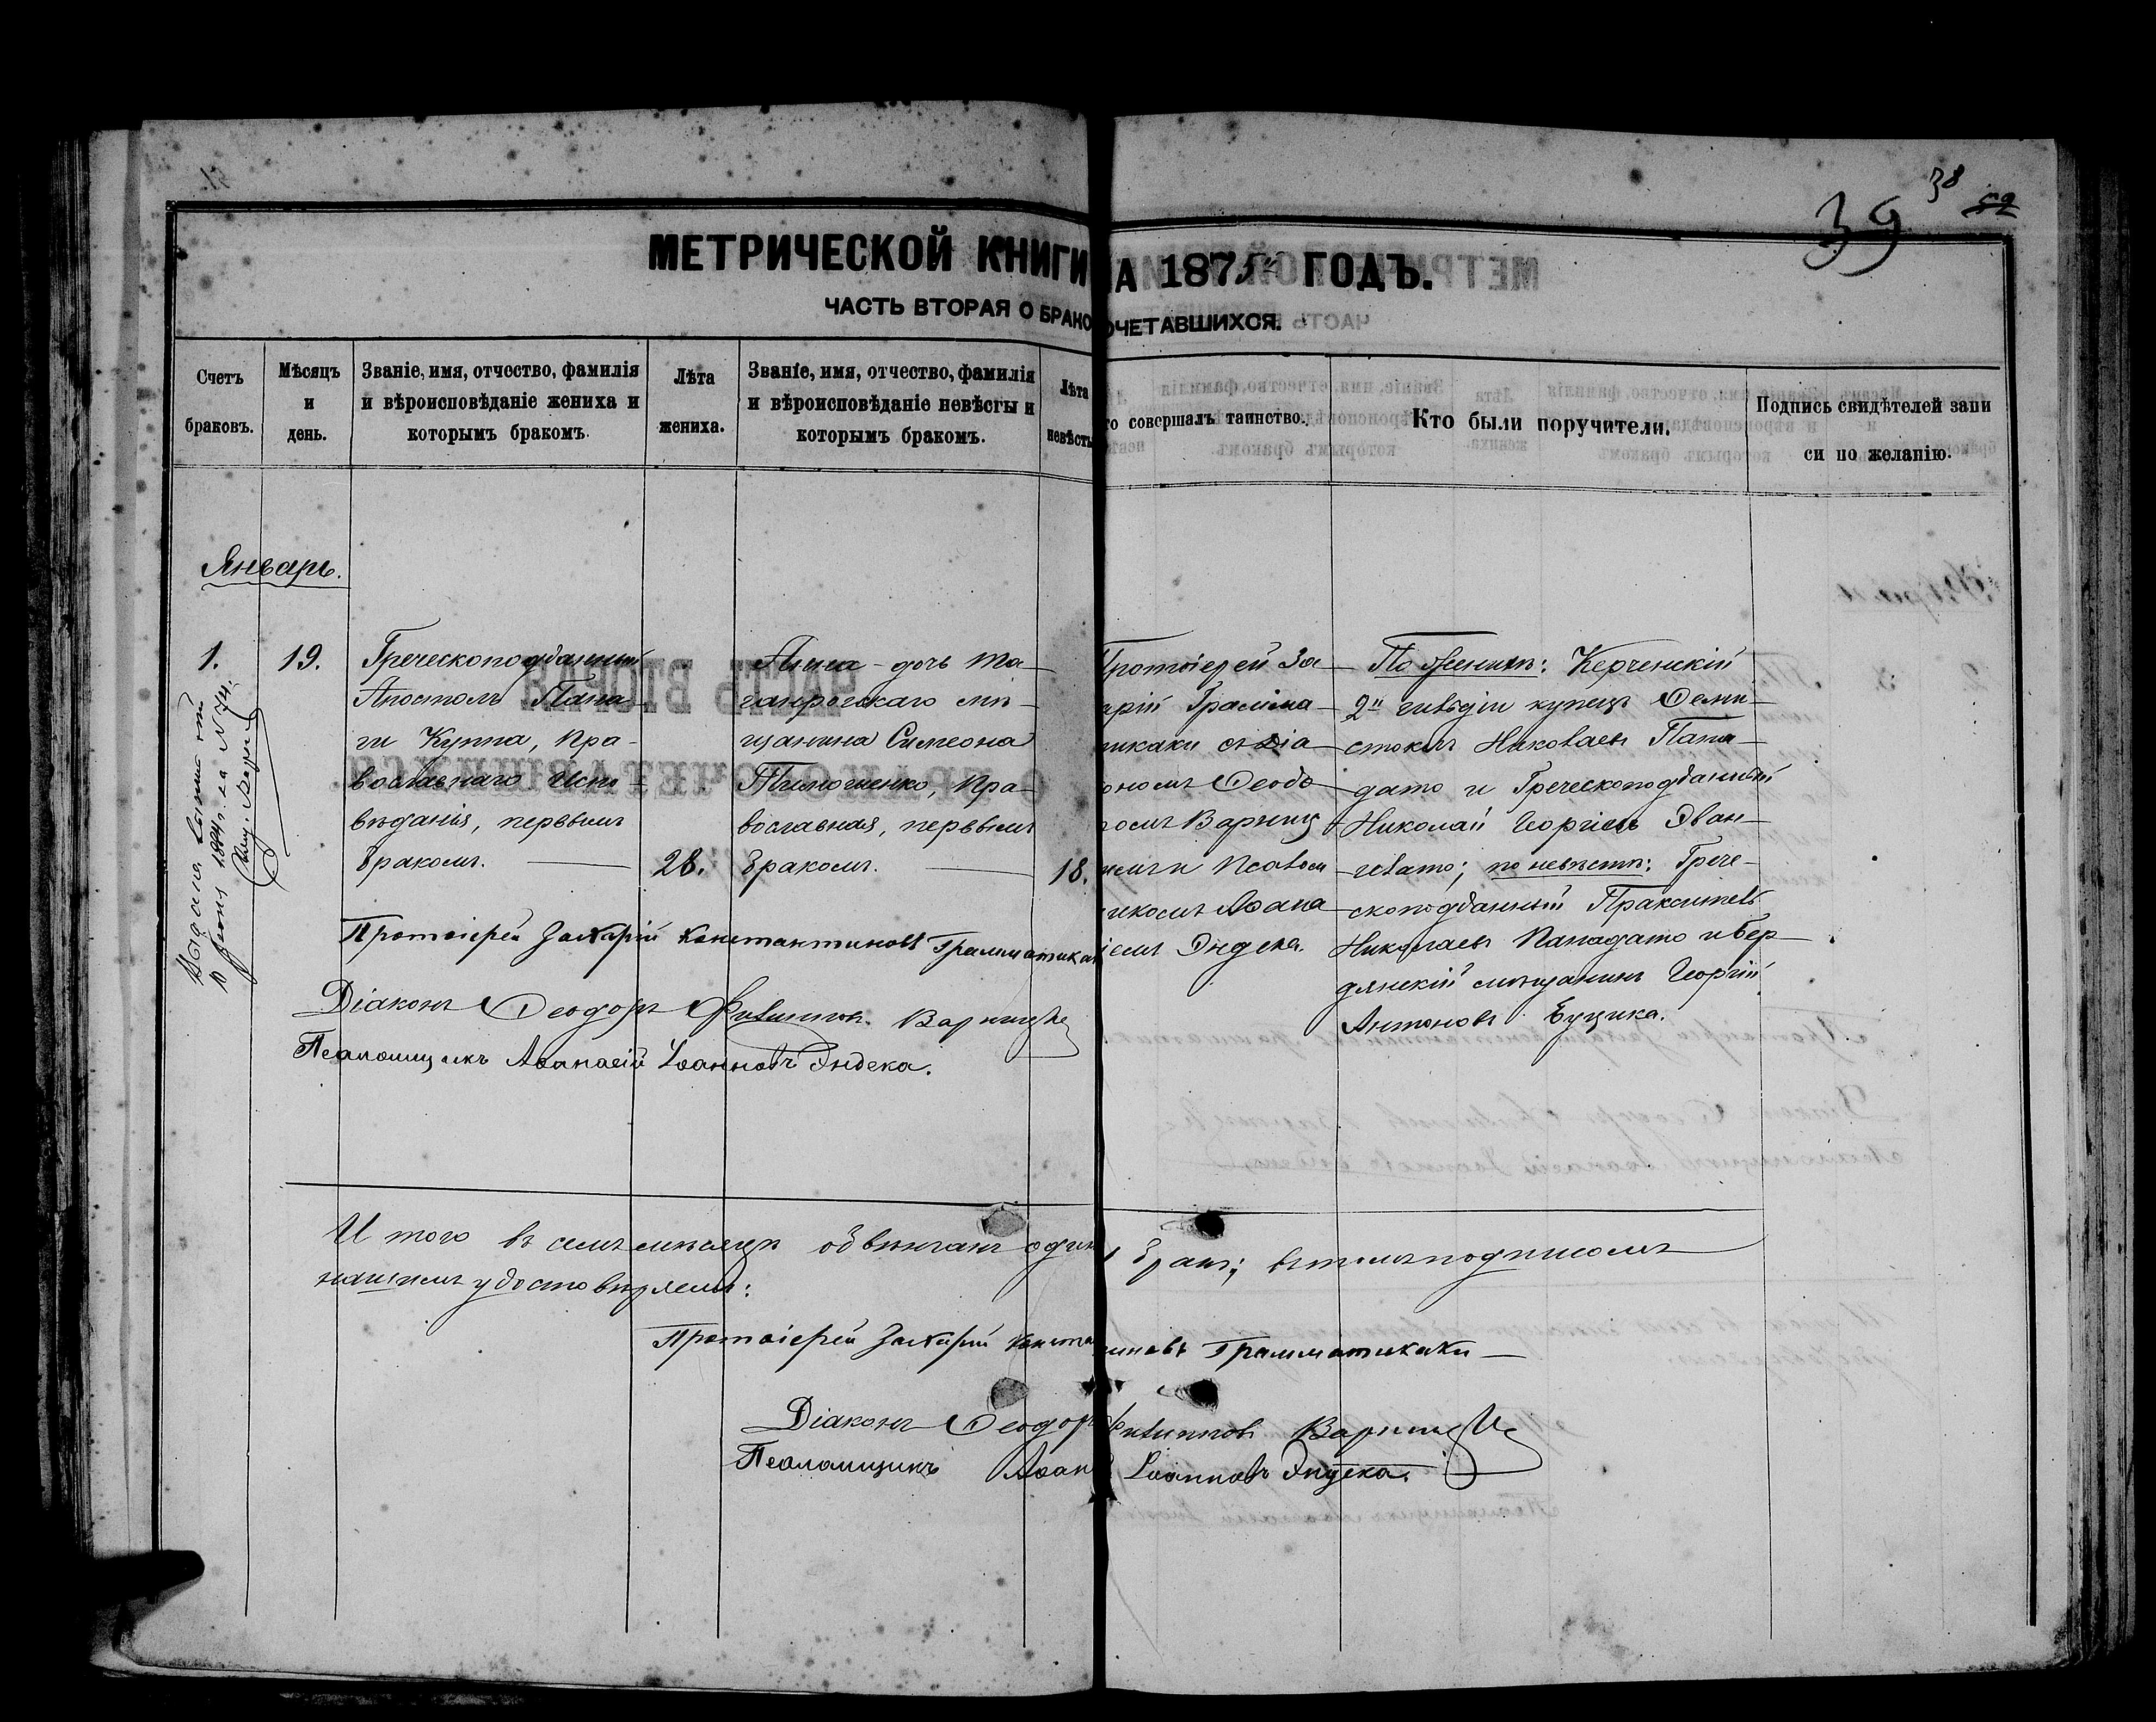 39 38 52
МЕТРИЧЕСКОЙ КНИГИ А 1875й ГОДЪ.
ЧАСТЬ ВТОРАЯ О БРАКО ОЧЕТАВШИХСЯ.
Счетъ браковъ.
Мѣсяцъ и день.
Званіе, имя, отчество, фамилія
и вѣроисповѣданіе жениха и
которымъ бракомъ.
Лѣта жениха.
Званіе, имя, отчество, фамилія
и вѣроисповѣданіе невѣсты и
которымъ бракомъ.
Лѣта невѣсты
го совершалъ таинство.
Кто были поручители.
Подпись свидѣтелей запи
си по желанію.
Январь.
1.
19.
Греческоподданный
Апостолъ Пана-
ги Куппа, пра-
вославнаго испо-
вѣданія, первымъ
бракомъ.
28.
Анна - дочь Та-
ганрогскаго мѣ-
щанина Симеона
Тимошенко, пра-
вославная, первымъ
бракомъ.
18.
Протоіерей За-
арій Грамма-
икаки съ діа-
ономъ Ѳеодо-
омъ Варниц
и Псалом
икомъ Аѳана
іемъ Эндека.
По женихѣ: Керченскій
2й гильдіи купецъ Ѳеми-
стоклъ Николаевъ Папа-
дато и Греческоподданный
Николай Георгіевъ Эван-
гелато; по невѣстѣ: Грече-
скоподданный Праксител
Николаевъ Пападато и Бер-
дянскій мѣщанинъ Георгій
Антоновъ Буцика.
Протоіерей Захарій Константиновъ Грамматика
Діаконъ Ѳеодоръ Филиппов. Варницкій
Псаломщикъ Аѳанасій Іоанновъ Эндека.
И того въ семъ мѣсяцѣ обвѣнчанъ один бракъ; въ томъ подписомъ
нашимъ удостовѣряемъ:
Протоіерей Захарій Конста иновъ Грамматикаки
Діаконъ Ѳеодоръ Филипповъ Варницкій
Псаломщикъ Аѳан Іоанновъ Эндека.